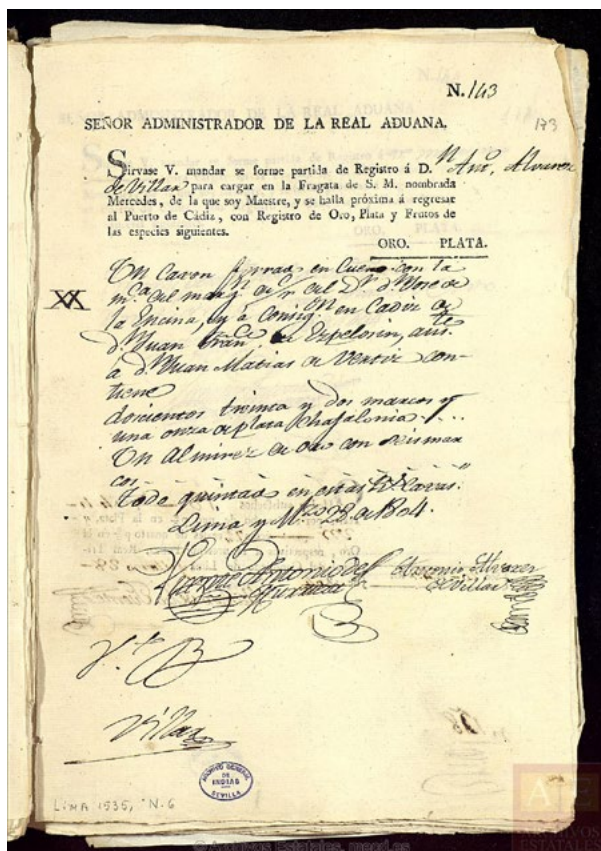 N. 143
173
SEÑOR ADMINISTRADOR DE LA REAL ADUANA.
Sírvase V. mandar se forme partida de Registro á D.n Anto. Alvarez
de Villar para cargar en la Fragata de S. M. nombrada
Mercedes, de la que soy Maestre, y se halla próxima á regresar
al Puerto de Cádiz, con Registro de Oro, Plata y Frutos de
las especies siguientes.
ORO. PLATA.
Un Caxon forrado en Cuero con la
m.ca del marg.n de del D.r d.n Jose de
la Encina, y a Consig.on en Cadiz de
d.n Juan Fran.co de Ezpelosin, aus.te
a d.n Juan Matias de con-
tiene
doscientos treinta y dos marcos y
una onza de plata Chafalonia.
Un Almirez de oro con seis mar
cos.
Todo quintado en estas R.s Caxas.
Lima y M.zo 28 de 1804.
Vicente Antonio de
Murrieta
Antonio Alvarez
del Villar
V.to B
Villar
ARCHIVO GENERAL
DE
INDIAS
SEVILLA
LIMA 1535, N.6
ARCHIVOS
ESTATALES
© Archivos Estatales, mecd.es